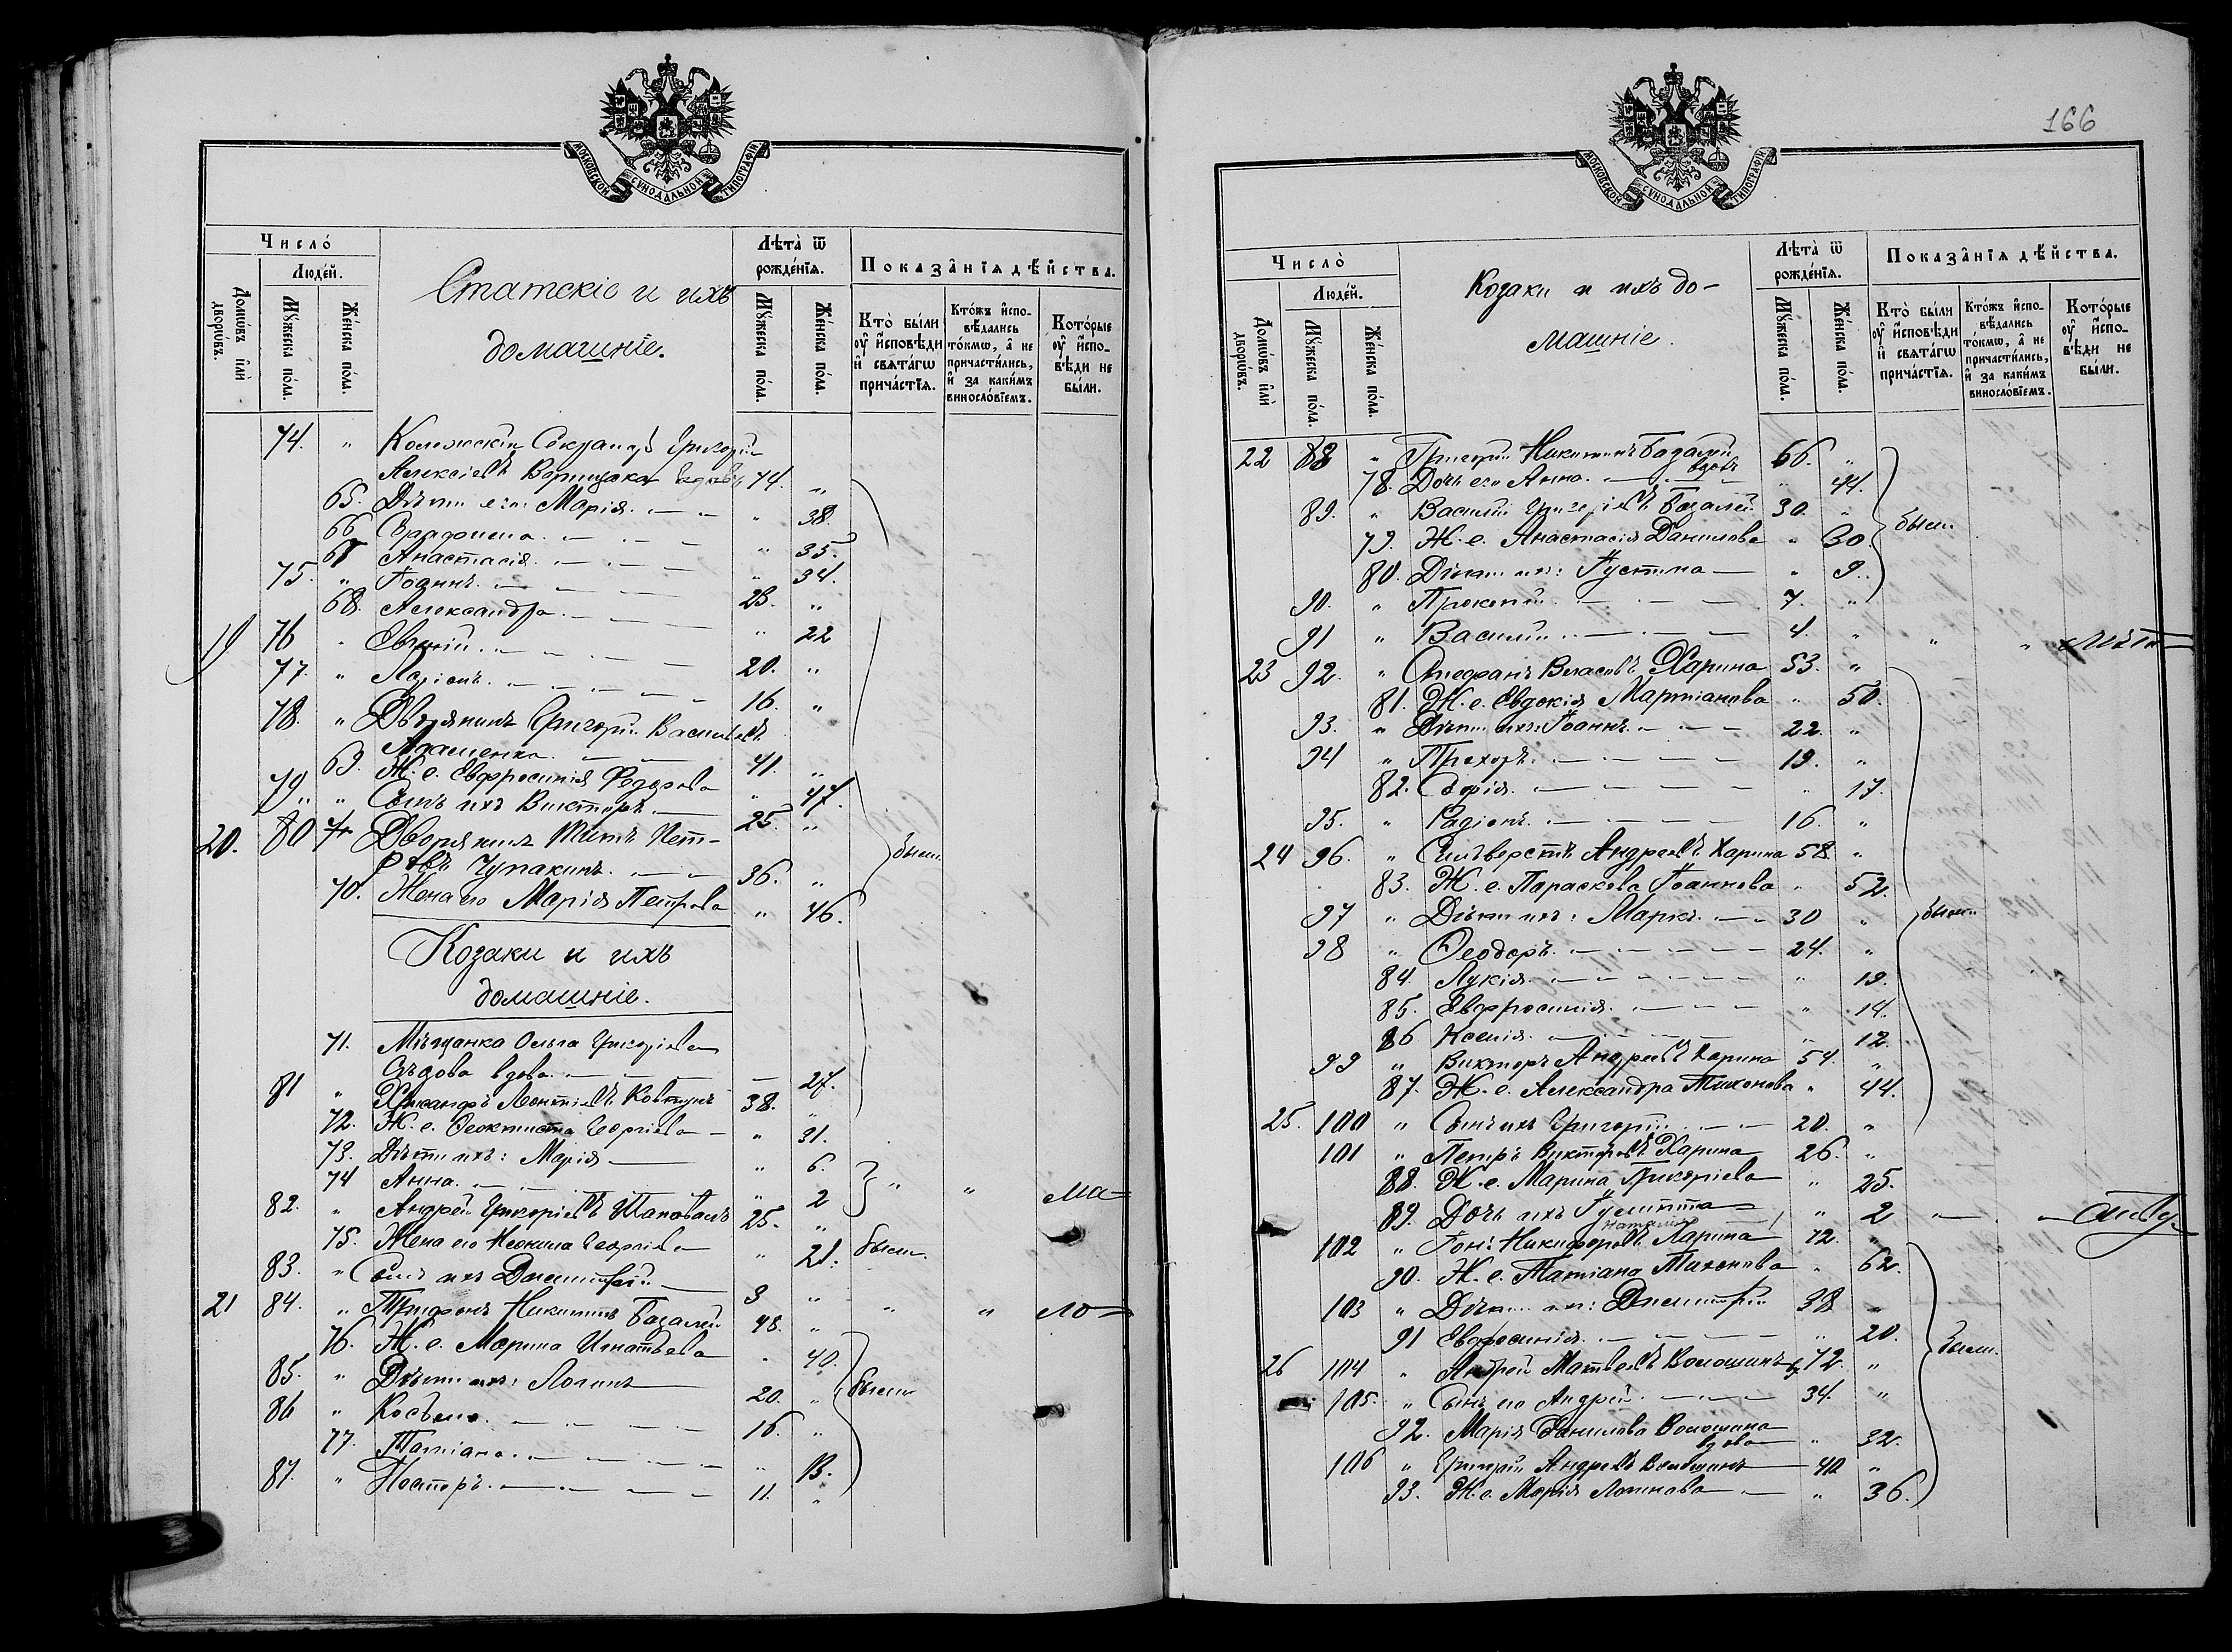 МОСКОВСКОЙ СѴНОДАЛЬНОЙ ТИПОГРАФІИ
Число̀
Домѡ́въ и҆лѝ дворѡ́въ.
Люде́й.
Мꙋ́жеска по́ла.
Же́нска по́ла.
Статскіе и ихъ
домашніе.
Лѣта̀ ѿ рожде́нїѧ.
Мꙋ́жеска по́ла.
Же́нска по́ла.
Показа̂нїѧ дѣ́йства.
Кто̀ бы́ли ᲂу҆̀ и҆сповѣ́ди и҆ свѧта́гѡ прича́стїѧ.
Кто́жъ и҆спо-вѣ́дались то́кмѡ, а҆ не причасти́лись, и҆ за каки́мъ винослóвїемъ.
Кото́рые ᲂу҆̀ и҆спо-вѣ́ди не бы́ли.
74. " Григорій
Алексіевъ 74. "
65. Дѣти его: Марія " 38.
66 " 35.
67 Анастасія " 34.
75. " Іоаннъ 23. "
68. Александра " 22
19 76 " Евгеній 20. "
77. " Ларіонъ 16. "
78. " Дворянинъ Григорій Васильевъ
Адаменко 41. "
69. Ж. е. Евфросинія Федорова " 47.
79 " " Сынъ ихъ Викторъ 25. "
20. 80 Дворянинъ Титъ Пет-
ровъ Чупакинъ 36. " были
70. Жена его Марія Петрова " 46.
Козаки и ихъ
домашніе.
71. Мѣщанка Ольга Григоріева
вдова 27.
81 " Леонтіевъ Ковтунъ 38. "
72. Ж. е. Феоктиста Георгіева " 31.
73. Дѣти ихъ: Марія " 6.
74 Анна " 2 " " ма-
82. " Андрей Григоріевъ Шаповалъ 25. "
75. Жена его Неонила Георгіева " 21. были
83. " Сынъ ихъ Димитрій 3 " " " ло-
21 84. " Трифонъ Никитинъ Базалей 48. "
76. Ж. е. Марина Игнатьева " 40.
85. " Дѣти ихъ: Логинъ 20. " были
86 " Косьма 16. "
77. Татіана " 13.
87. " Несторъ 11. "
166
МОСКОВСКОЙ СѴНОДАЛЬНОЙ ТИПОГРАФІИ
Число̀
Домѡ́въ и҆лѝ дворѡ́въ.
Люде́й.
Мꙋ́жеска по́ла.
Же́нска по́ла.
Козаки и ихъ до-
машніе.
Лѣта̀ ѿ рожде́нїѧ.
Мꙋ́жеска по́ла.
Же́нска по́ла.
Показа̂нїѧ дѣ́йства.
Кто̀ бы́ли ᲂу҆̀ и҆сповѣ́ди и҆ свѧта́гѡ прича́стїѧ.
Кто́жъ и҆спо-вѣ́дались то́кмѡ, а҆ не причасти́лись, и҆ за каки́мъ винослóвїемъ.
Кото́рые ᲂу҆̀ и҆спо-вѣ́ди не бы́ли.
22 88 " Григорій Никитинъ Базалей вдовъ 66. "
78. Дочь его Анна " 44.
89. " Василій Григоріевъ Базалей 30. " были
79. Ж. е. Анастасія Данилова " 30.
80. Дѣти ихъ: Іустина " 9.
90. " Прокопій 7. "
91 " Василій 4. " " " лѣт-
23 92. " Стефанъ Власовъ Харина 53. "
81. Ж. е. Евдокія Мартіанова " 50.
93. " Дѣти ихъ: Іоаннъ 22. "
94 " Прохоръ 19. "
82. Софія " 17.
95. " Радіонъ 16. "
24 96. " Сильверстъ Андреевъ Харина 58. "
83. Ж. е. Параскева Іоаннова " 52.
97 " Дѣти ихъ: Маркъ 30 " были
98 " Ѳеодоръ 24. "
84. Лукія " 19.
85. Евфросинія " 14.
86 Ксенія " 12.
99 " Викторъ Андреевъ Харина 54. "
87. Ж. е. Александра Тихонова " 44.
25. 100 " Сынъ ихъ Григорій 20. "
101 " Петръ Викторовъ Харина 26. "
88. Ж. е. Марина Григоріева " 25.
89. Дочь ихъ " 2 " "
102 " Никифоровъ Ларина 72. "
90. Ж. е. Татіана Тихонова " 62.
103 " Дѣти их: Димитрій 38 "
91 Евфросинія " 20. были
26 104 " Андрей Матвеевъ Волошинъ 72. "
105. " Сынъ его Андрей 34. "
92. Марія Данилова Волошина вдова " 32.
106 " Григорій Андреевъ Волошинъ 40 "
93. Ж. е. Марія Логинова " 36.